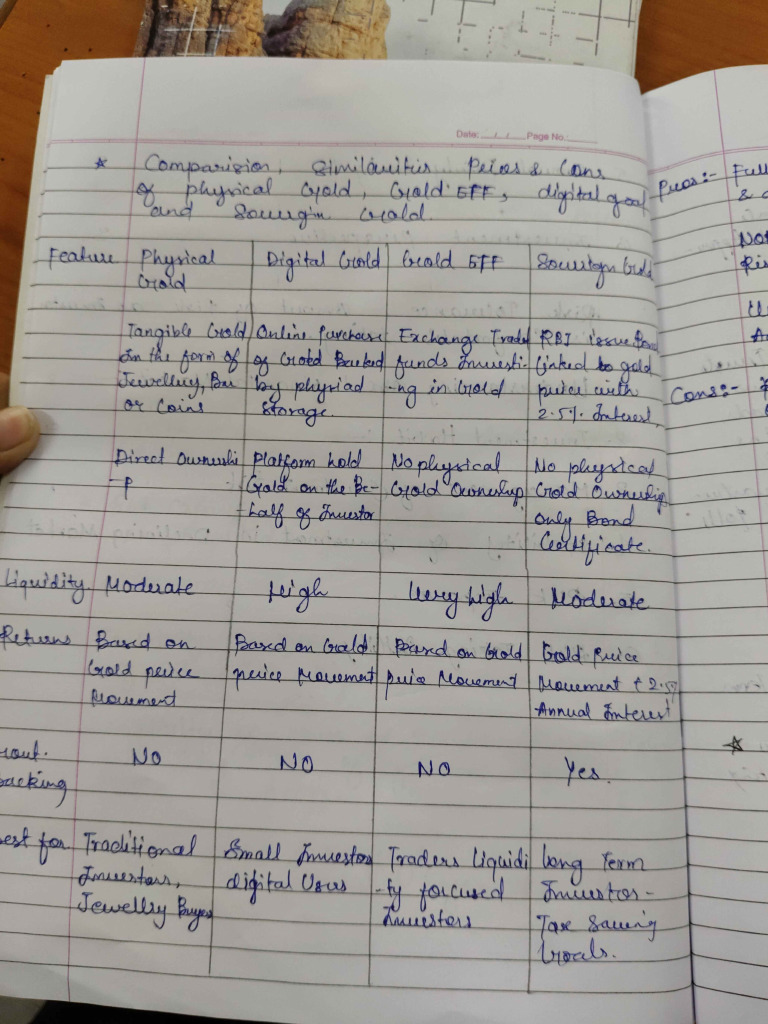 Date: __/__/__ Page No.:____
* Comparision, Similarities Pros & Cons
of physical Gold, Gold ETF, digital goal
and Sovergin Gold.
Feature Physical Gold | Digital Gold | Gold ETF | Sovereign Gold
Tangible Gold | Online purchase | Exchange Traded | RBI issue Bond
In the form of | of Gold Backed | funds Investi- | linked to gold
Jewellery, Bar | by physical | -ng in Gold | price with
or Coins | storage. | 2.5% Interest,
Direct Ownershi | Platform hold | No physical | No physical
-p | Gold on the Be- | Gold Ownership | Gold Ownership
-half of Investor | only Bond
Certificate.
Liquidity Moderate | High | Very high | Moderate
Returns Based on | Based on Gold | Based on Gold | Gold Price
Gold price | price Movement | price Movement | Movement + 2.5%
Movement | Annual Interest
No | No | No | Yes.
backing
est for Traditional | Small Investors | Traders Liquidi | Long Term
Investors, | digital Users | -ty focused | Investor -
Jewellry Buyers | Investors | Tax Saving
Goals.
Pros:- Full
&
Not
Cons:-
*